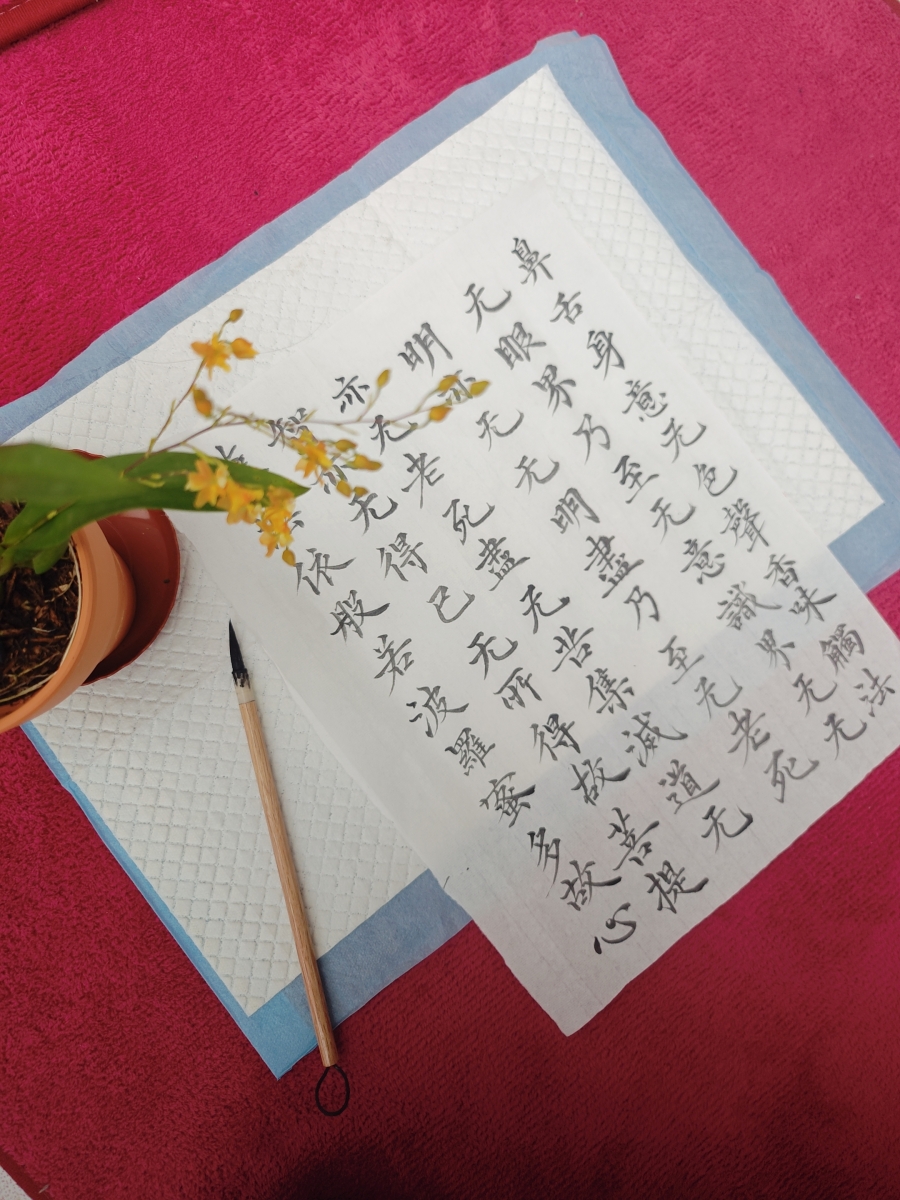 鼻舌身意无色聲香味觸法
无眼界乃至无意識界无无
明亦无无明盡乃至无老死
亦无老死盡无苦集滅道无
智亦无得已无所得故菩提
依般若波羅蜜多故心